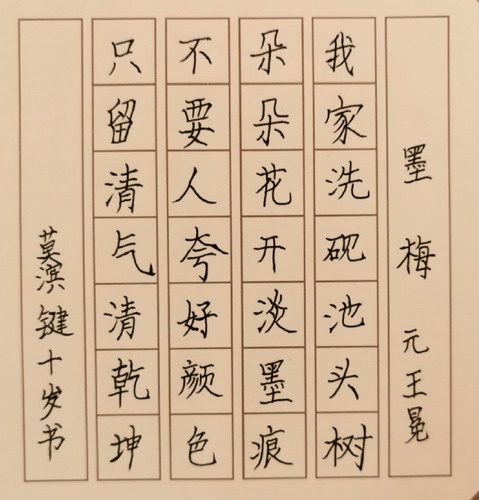 墨梅 元 王冕
我家洗砚池头树
朵朵花开淡墨痕
不要人夸好颜色
只留清气清乾坤
莫滨键十岁书